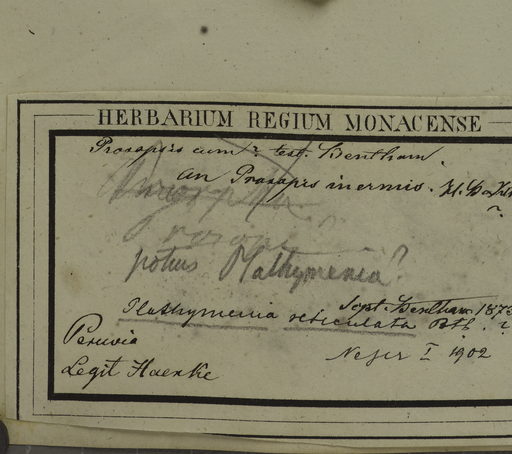 HERBARIUM REGIUM MONACENSE
Prosopis cum ? test. Bentham.
an Prosopis inermis. H. B. Kth
?
potius Plathymenia?
Sept. Bentham 1873
Plathymenia reticulata Bth. ?
Peruvia
I 1902
Legit Haenke